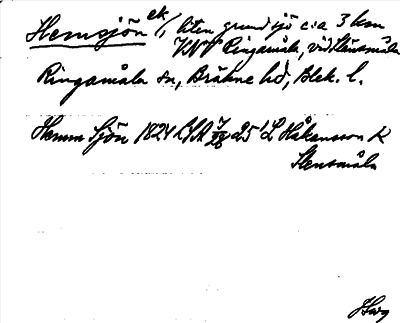 Hemsjön ek/, liten grund sjö c:a 3 km
VNV Ringamåla, vid Stensmåla
Ringamåla sn, Bräkne hd, Blek. l.
Hemm Sjön 1824 LSA 25 L Håkansson K
Stensmåla